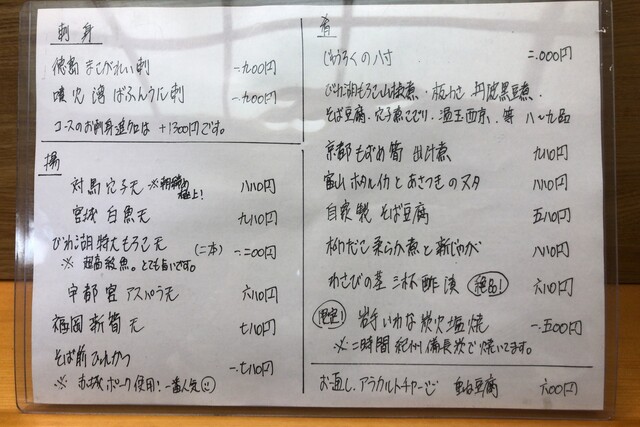 刺身
徳島 まこがれい刺 一.九〇〇円
噴火湾 ばふんうに刺 一.九〇〇円
コースのお刺身追加は +1300円です。
揚
対馬 穴子天 八八〇円
宮城 白魚天 九八〇円
びわ湖 特大もろこ天 (二本) 一.二〇〇円
※ 超高級魚。とても旨いです。
宇都宮 アスパラ天 六八〇円
福岡 新筍天 七八〇円
そば前 ひれかつ 一.七八〇円
※ 赤城ポーク使用!一番人気
肴
じゅうろくの八寸 二.〇〇〇円
びわ湖もろこ山椒煮・板わさ・丹波黒豆煮・
そば豆腐・穴子煮こごり・温玉西京・等 八〜九品
京都 もずめ筍 出汁煮 九八〇円
富山 ホタルイカとあさつきのヌタ 八八〇円
自家製 そば豆腐 五八〇円
柳だこ柔らか煮と新じゃが 八八〇円
わさびの茎 三杯酢漬 絶品! 六八〇円
限定! 岩手いわな 炭火塩焼 一.五〇〇円
※二時間 紀州備長炭で焼いてます。
お通し.アラカルトチャージ 豆腐 六〇〇円